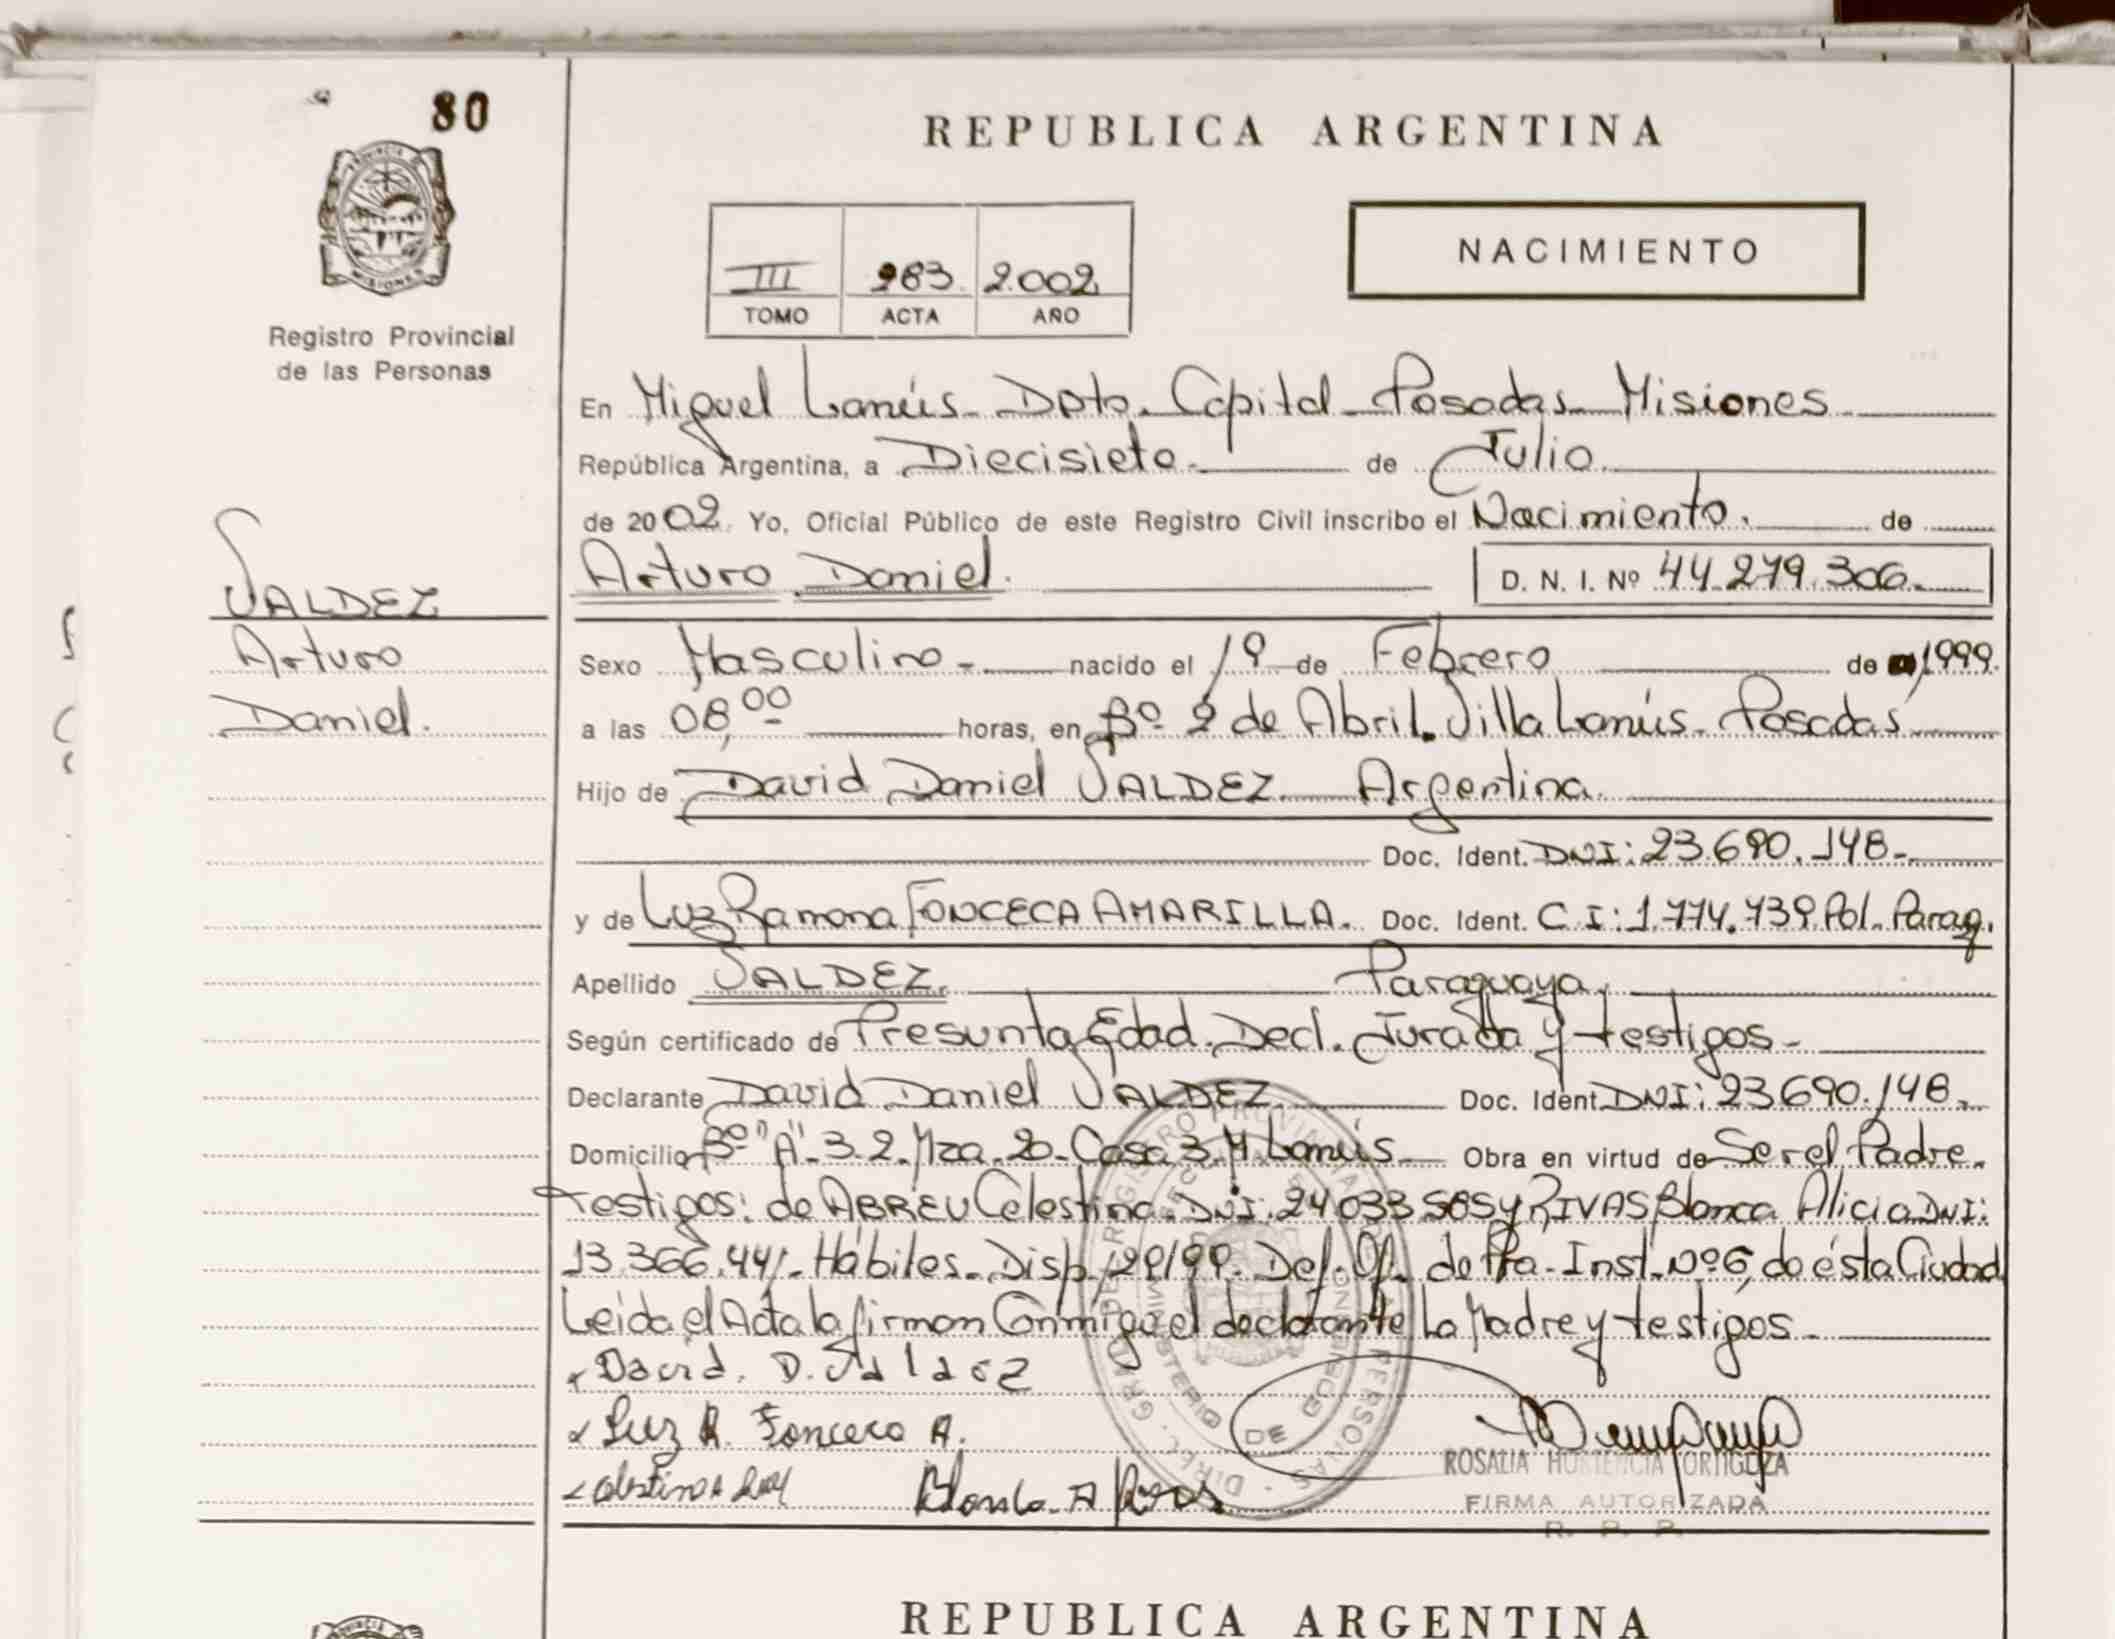 80
REPUBLICA ARGENTINA
NACIMIENTO
III 283. 2.002
TOMO ACTA AÑO
PROVINCIA DE MISIONES
Registro Provincial
de las Personas
En Miguel Lanús - Dpto. Capital - Posadas - Misiones
República Argentina, a Diecisiete. de Julio
de 2002. Yo, Oficial Público de este Registro Civil inscribo el Nacimiento. de
Arturo Daniel. D. N. I. Nº 44.279.306.
VALDEZ
Arturo
Daniel.
Sexo Masculino - nacido el 19 de Febrero de 1999.
a las 08,00 horas, en Bº 2 de Abril. Villa Lanús - Posadas
Hijo de David Daniel VALDEZ Argentina.
Doc. Ident. DNI: 23.690.148 -
y de Luz Ramona FONCECA AMARILLA. Doc. Ident. C.I: 1.774.739 Pol. Parag.
Apellido VALDEZ. Paraguaya.
Según certificado de Presunta Edad. Decl. Jurada y testigos -
Declarante David Daniel VALDEZ. Doc. Ident. DNI: 23.690.148 -
Domicilio Bº "A" - 3.2. Mza. 20 - Casa 3. M. Lanús Obra en virtud de Ser el Padre.
testigos: de ABREU Celestina. DNI: 24.033.585 y RIVAS Blanca Alicia DNI:
13.366.441 - Hábiles - Disp. 129/99. Def. Of. de Pra. Inst. Nº 6, de ésta Ciudad
Leída el Acta la firman Conmigo el declarante La Madre y testigos -
David. D. Valdez
Luz R. Fonceca A.
Blanca A Rivas
ROSALIA HORTENCIA ORTIGOZA
FIRMA AUTORIZADA
R. P. P.
REPUBLICA ARGENTINA